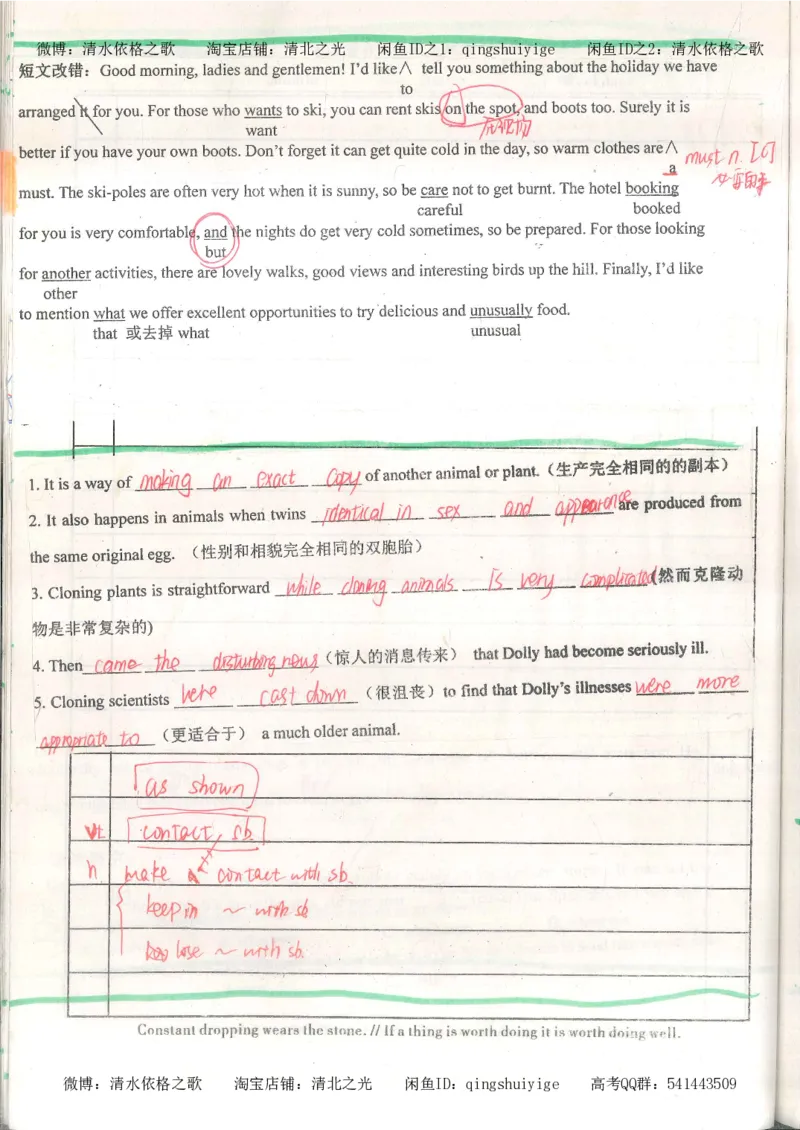 微博：清水依格之歌 淘宝店铺：清北之光 闲鱼ID之1：qingshuiyige 闲鱼ID之2：清水依格之歌
短文改错：Good morning, ladies and gentlemen! I'd like∧ tell you something about the holiday we have
to
arranged it for you. For those who wants to ski, you can rent skis on the spot, and boots too. Surely it is
want
better if you have your own boots. Don't forget it can get quite cold in the day, so warm clothes are∧
a
must n. [C]
must. The ski-poles are often very hot when it is sunny, so be care not to get burnt. The hotel booking
careful booked
for you is very comfortable, and the nights do get very cold sometimes, so be prepared. For those looking
but
for another activities, there are lovely walks, good views and interesting birds up the hill. Finally, I'd like
other
to mention what we offer excellent opportunities to try delicious and unusually food.
that 或去掉 what unusual
1. It is a way of making an exact copy of another animal or plant.（生产完全相同的的副本）
2. It also happens in animals when twins identical in sex and appearance are produced from
the same original egg. （性别和相貌完全相同的双胞胎）
3. Cloning plants is straightforward while cloning animals is very complicated (然而克隆动
物是非常复杂的)
4. Then came the disturbing news （惊人的消息传来） that Dolly had become seriously ill.
5. Cloning scientists were cast down （很沮丧）to find that Dolly's illnesses were more
appropriate to （更适合于） a much older animal.
as shown
vt contact sb.
n make contact with sb.
keep in ~ with sb
lose ~ with sb.
Constant dropping wears the stone. // If a thing is worth doing it is worth doing well.
微博：清水依格之歌 淘宝店铺：清北之光 闲鱼ID：qingshuiyige 高考QQ群：541443509